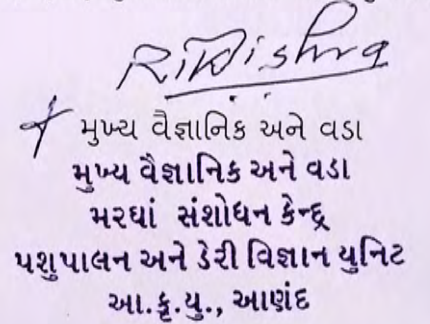 મુખ્ય વૈજ્ઞાનિક અને વડા
મુખ્ય વૈજ્ઞાનિક અને વડા
મરઘાં સંશોધન કેન્દ્ર
પશુપાલન અને ડેરી વિજ્ઞાન યુનિટ
આ.કૃ.યુ., આણંદ